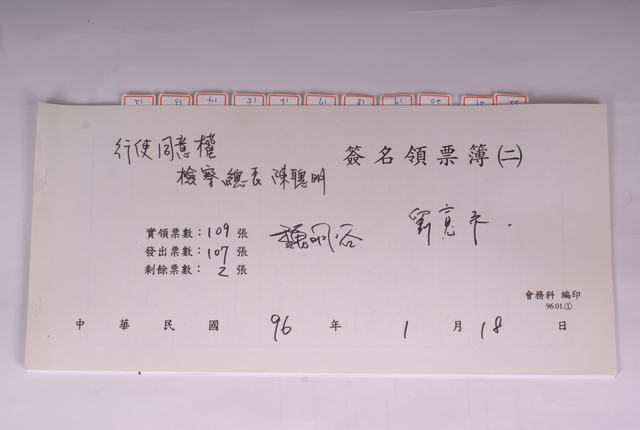 12 13 14 15 16 17 18 19 20 21 22
行使同意權
簽名領票簿(二)
檢察總長 陳聰明
實領票數：109 張
發出票數：107 張
剩餘票數：2 張
魏明谷
會務科 編印
96.01.①
中華民國 96 年 1 月 18 日